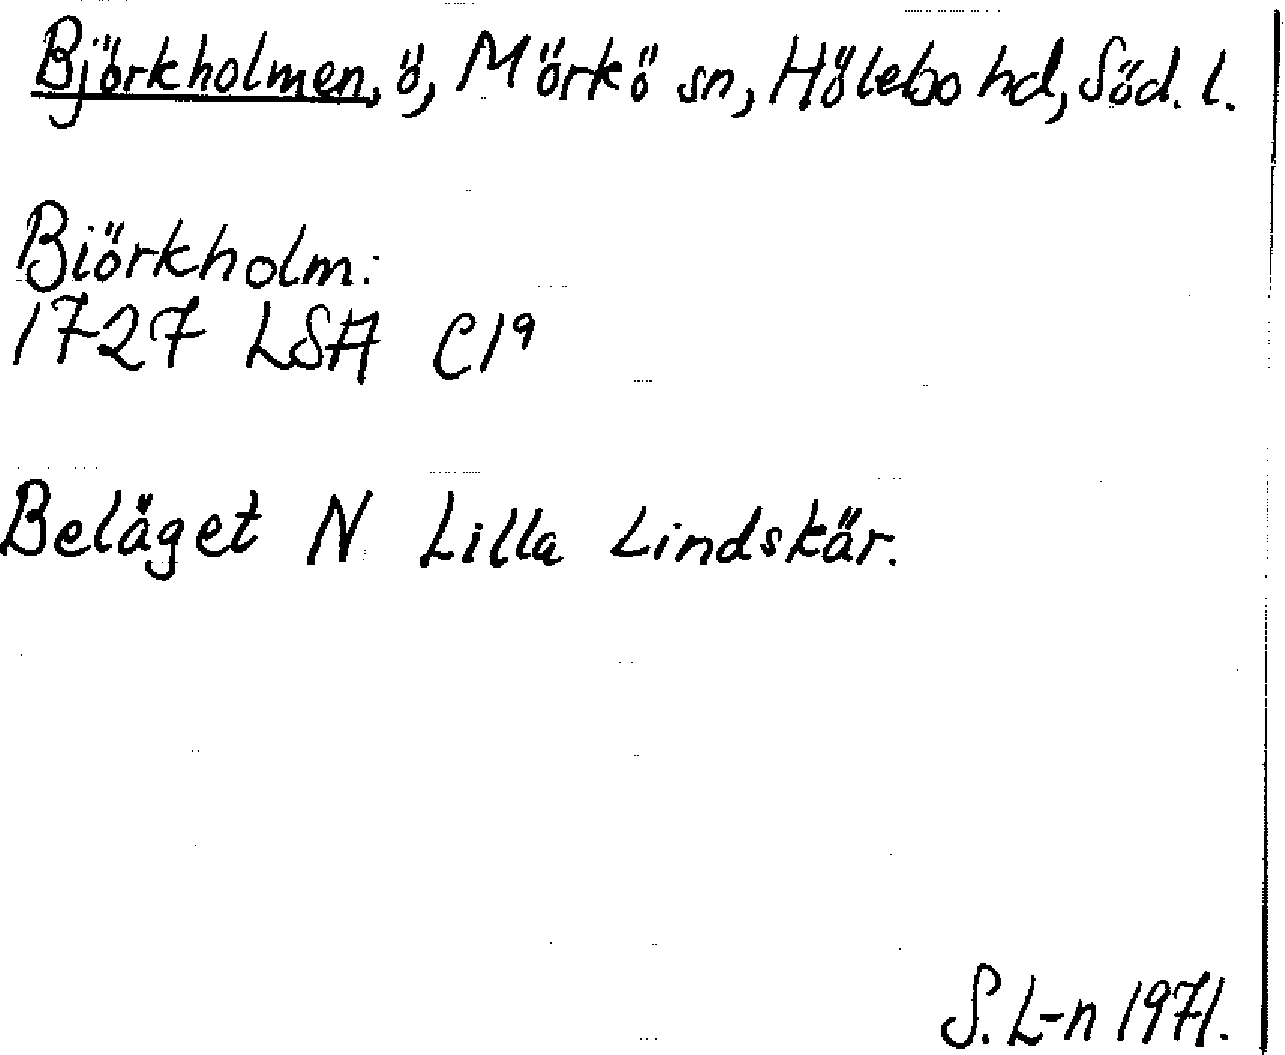 Björkholmen, ö, Mörkö sn, Hölebo hd, Söd. l.
Biörkholm:
1727 LSA C1⁹
Beläget N Lilla Lindskär.
S. L-n 1971.